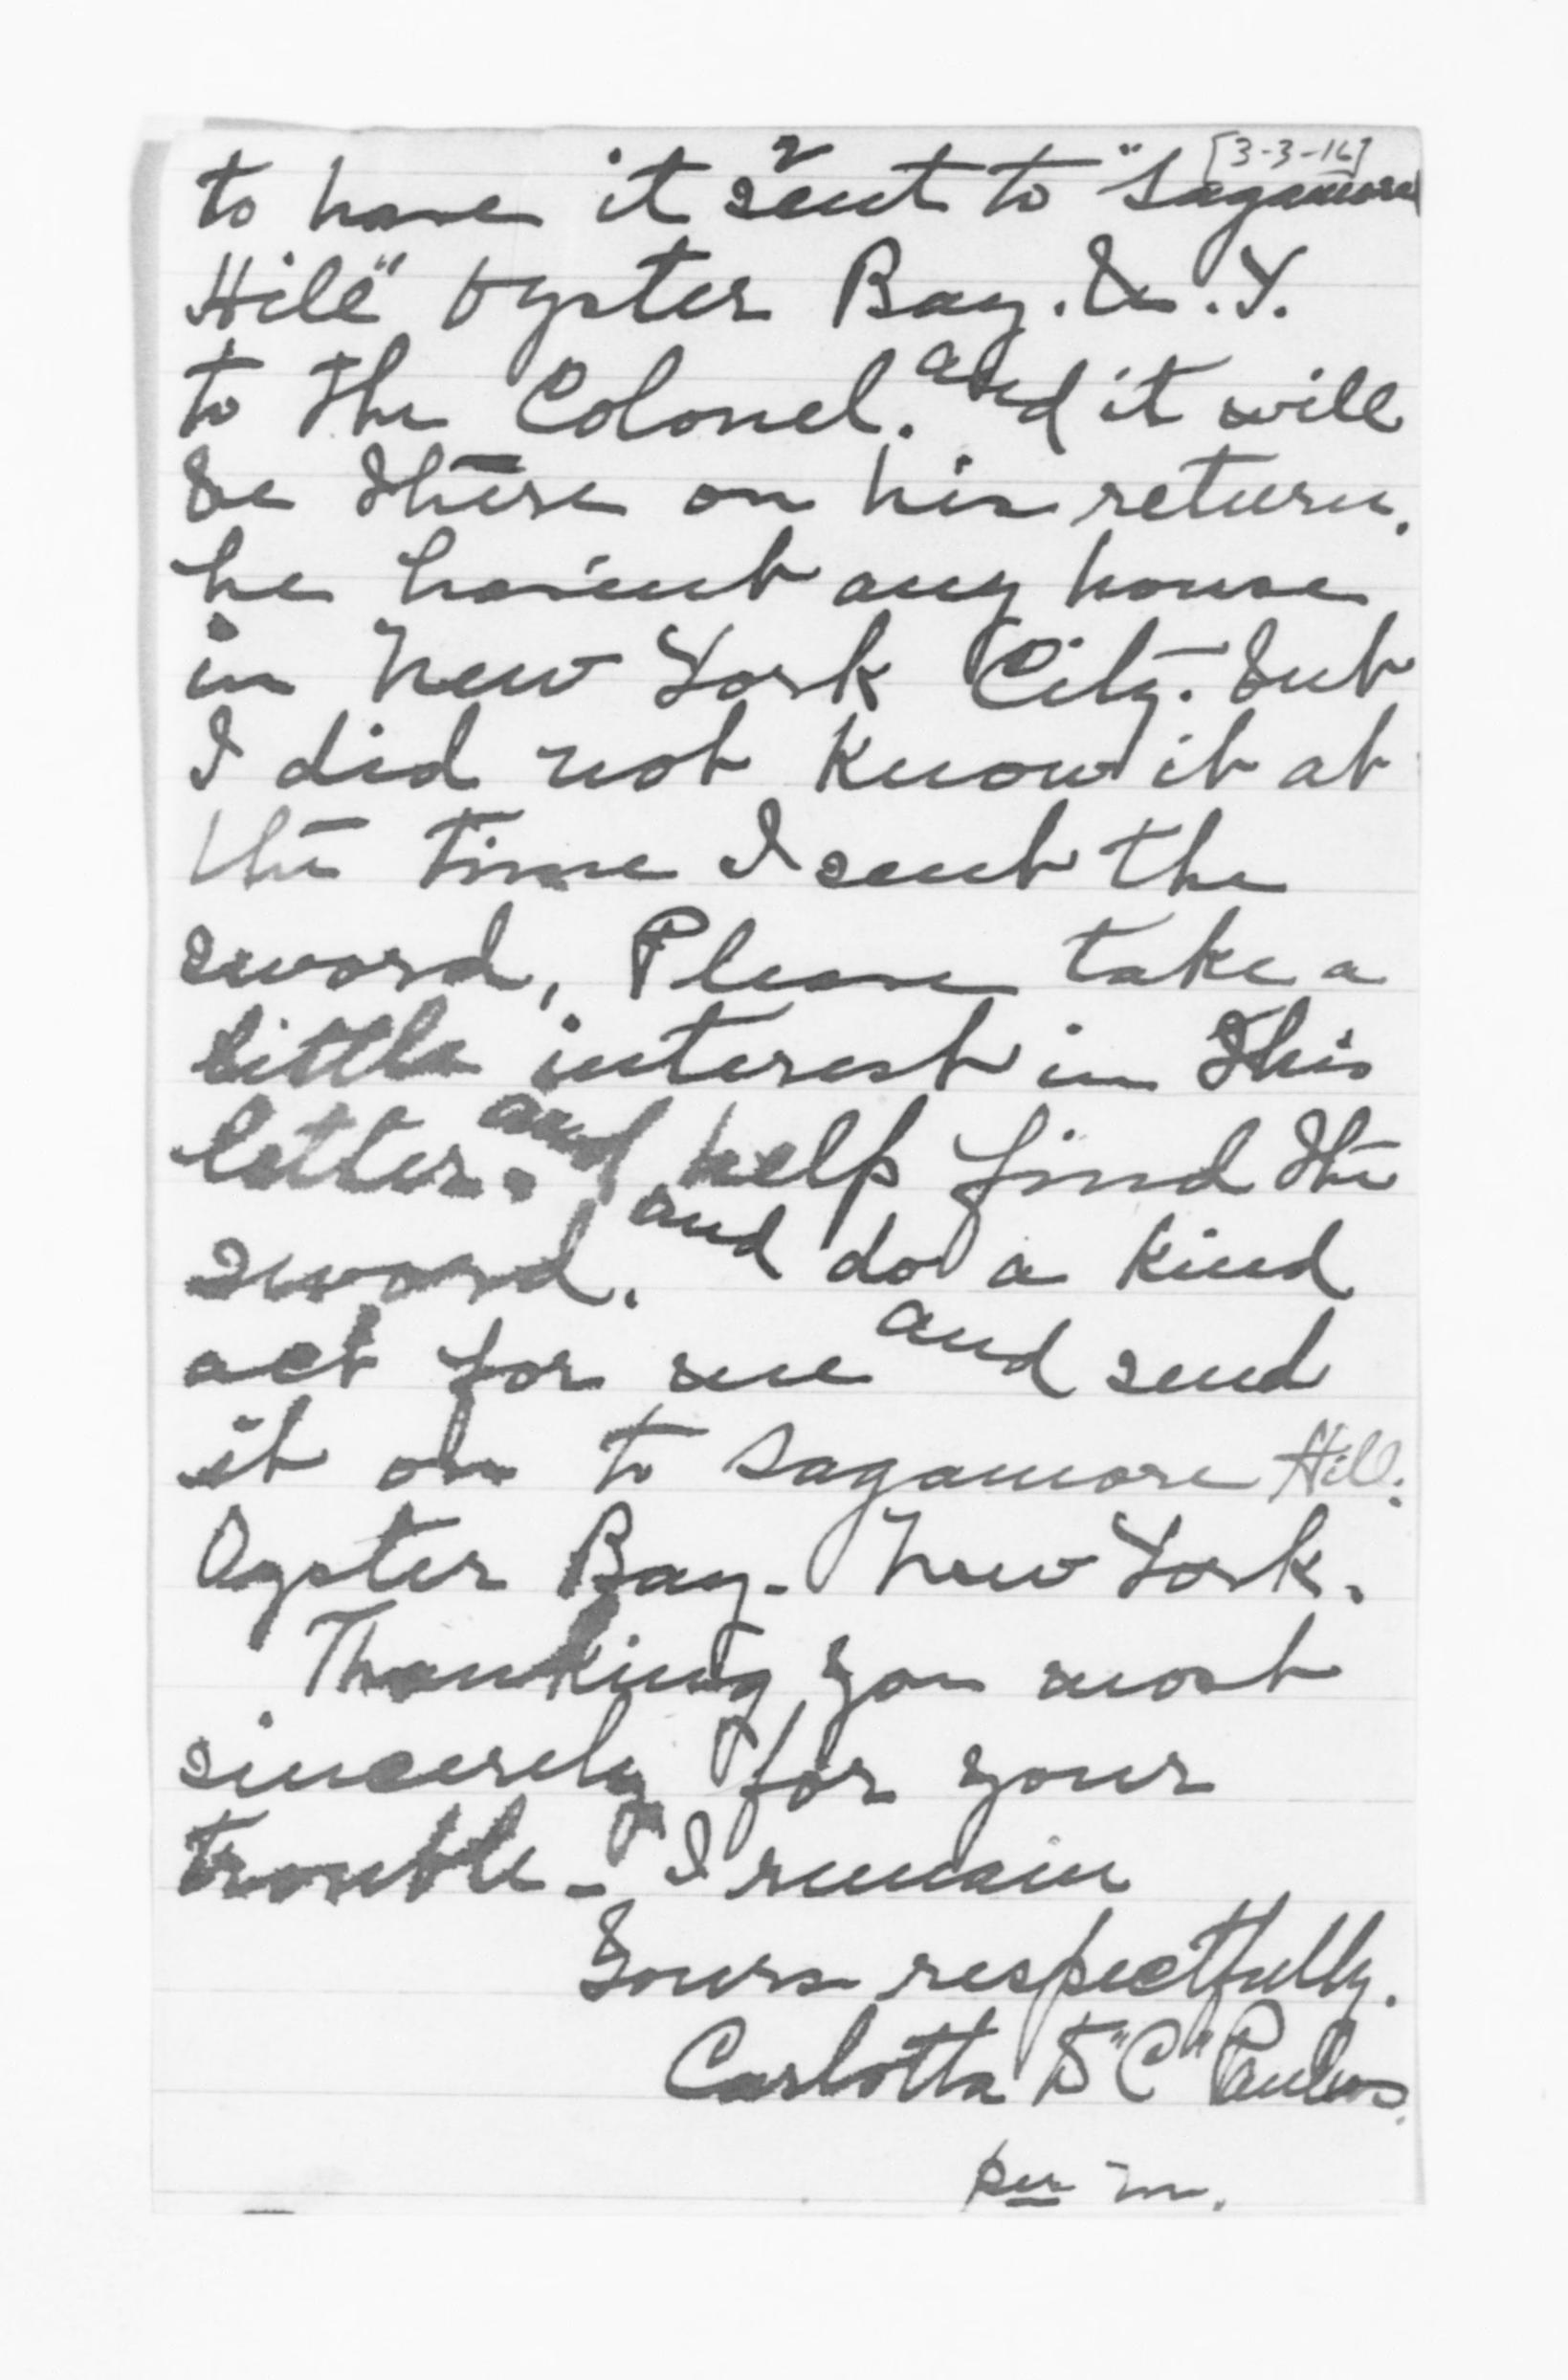 2
[3-3-16]
to have it sent to "Sagamore
Hill" Oyster Bay. N.Y.
to the Colonel. and it will
be there on his return.
he have'nt any house
in New York City. but
I did not know it at
the time I sent the
sword, Please take a
little interest in this
letter. and help find the
sword. and do a kind
act for me and send
it on to Sagamore Hill.
Oyster Bay. New York.
Thanking you most
sincerely for your
trouble - I remain
Yours respectfully.
Carlotta "C"
per m.